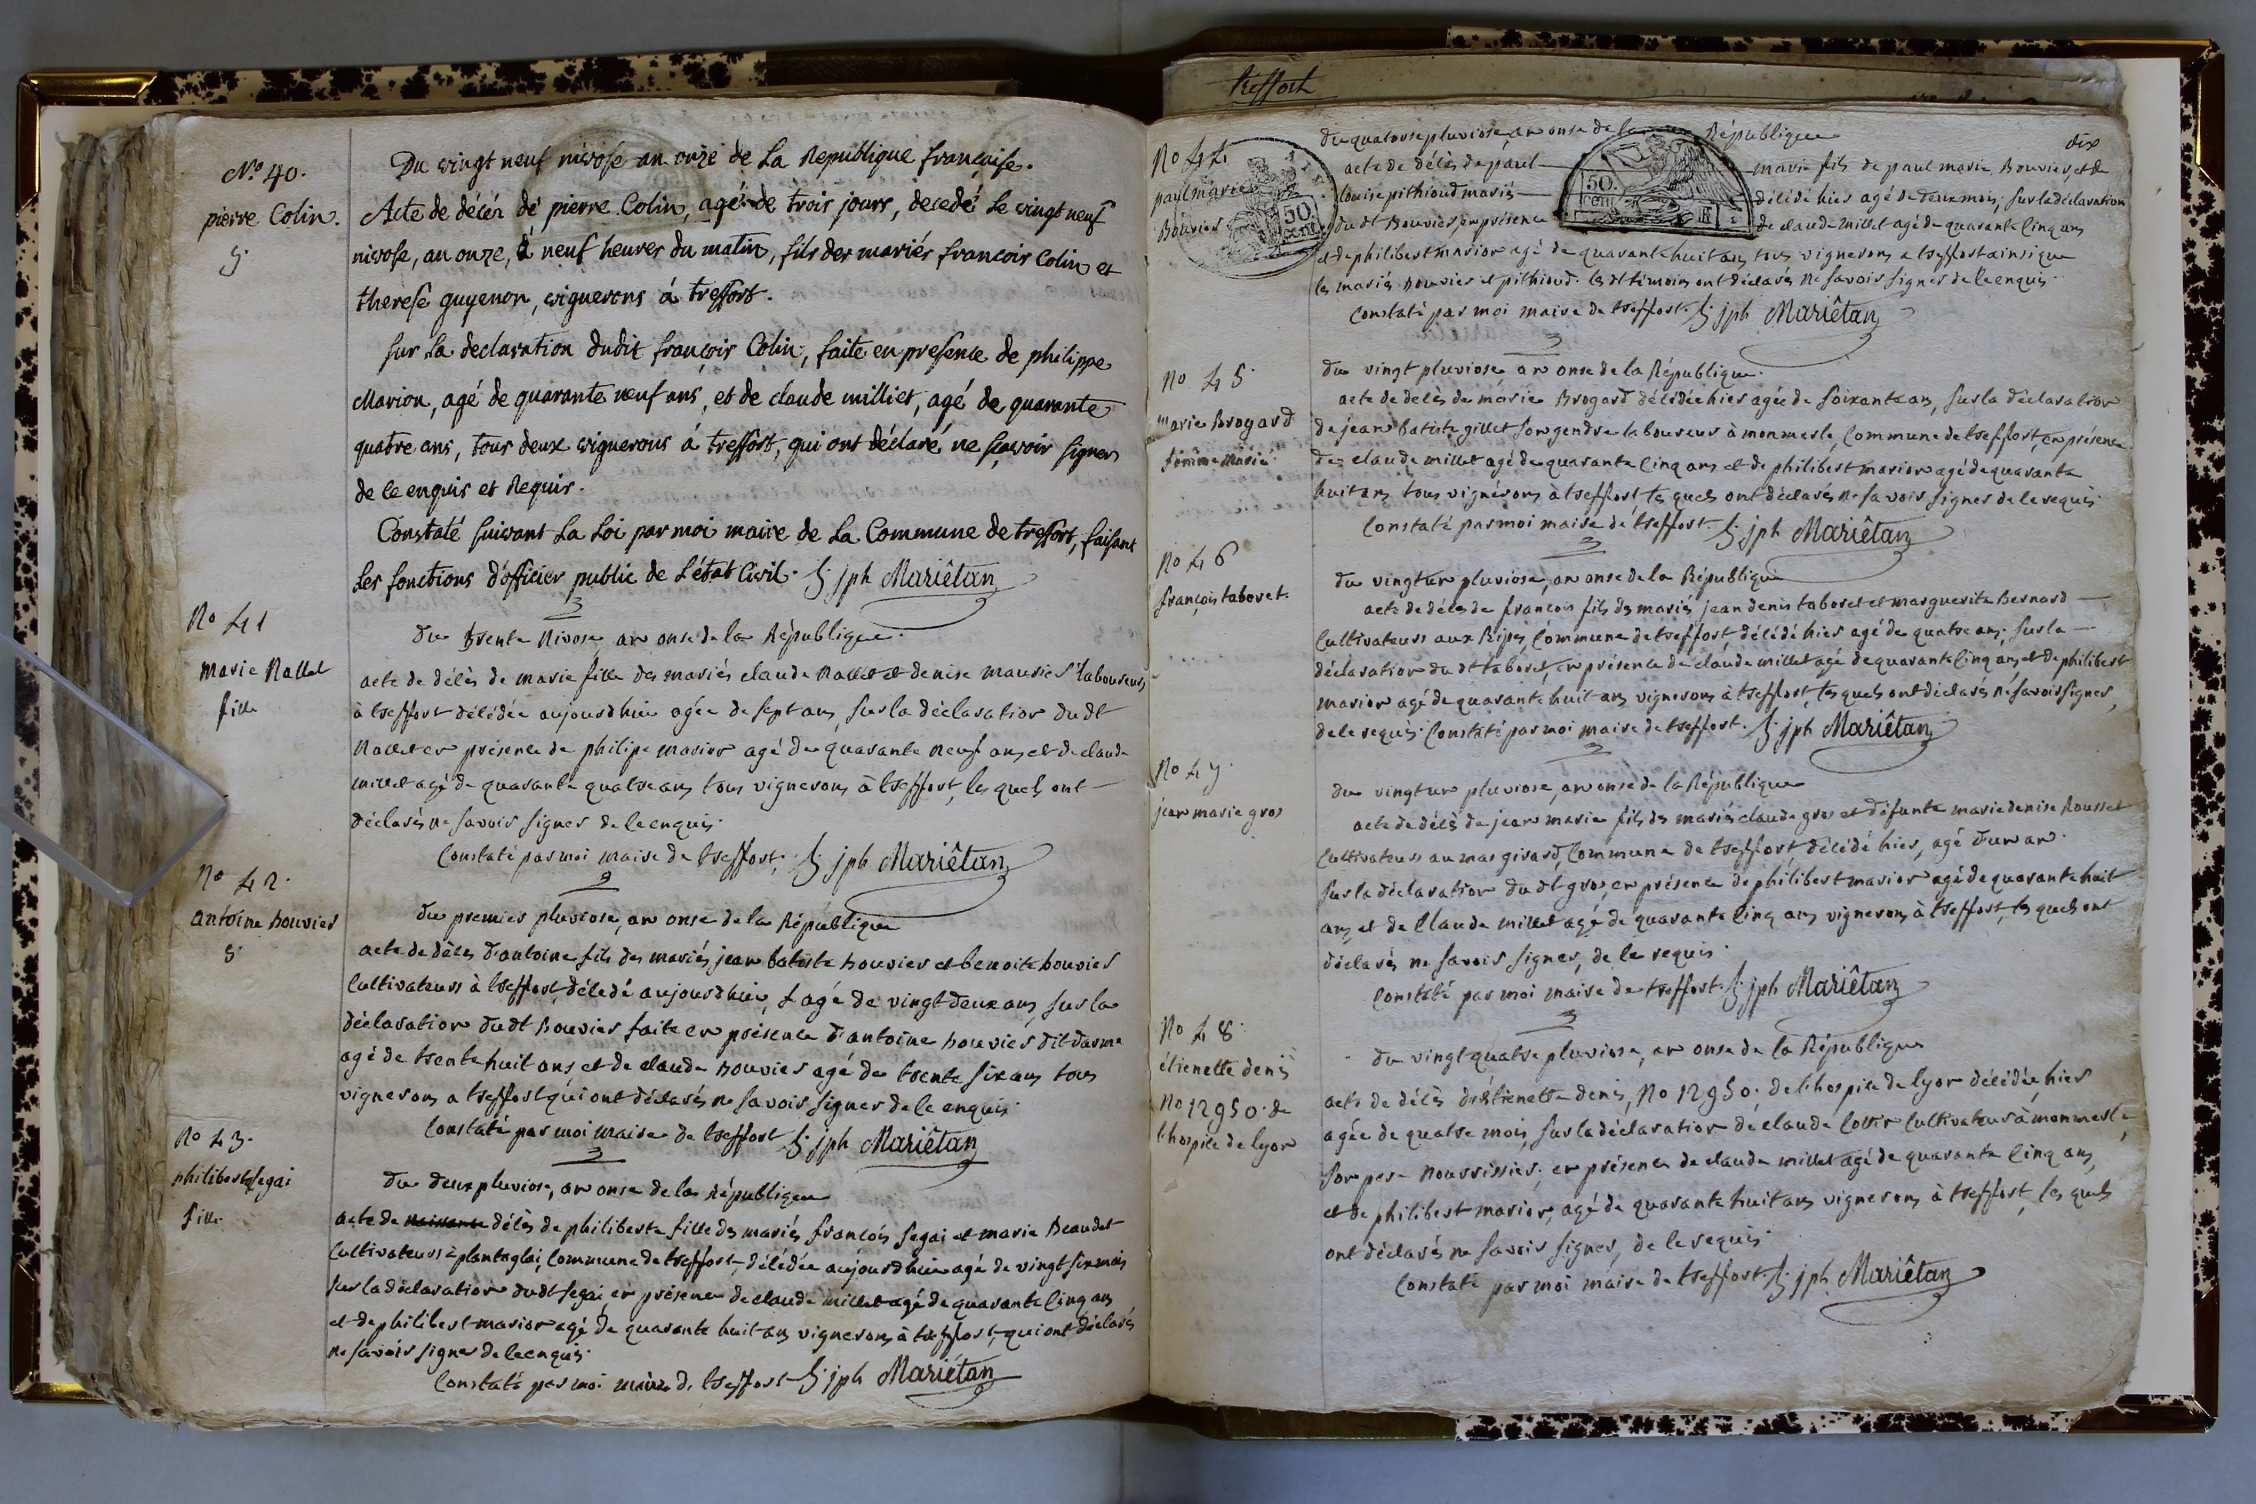 N.º 40.
pierre Colin.
g.
Du vingt neuf nivose an onze de La Republique françaiſe.
Acte de décés de pierre Colin, agé de trois jours, decedé Le vingt neuf
nivose, an onze, à neuf heures du matin, fils des mariés francois Colin et
thereſe guyenon, vignerons á treffort.
Sur La declaration dudit françois Colin, faite en preſence de philippe
Marion, agé de quarante neuf ans, et de claude milliet, agé de quarante
quatre ans, tous deux vignerons á treffort, qui ont déclaré ne ſçavoir ſigner
de ce enquis et Requis.
Constaté ſuivant La Loi par moi maire de La Commune de treffort, faiſant
Les fonctions d'officier public de L'état Civil. jph Mariêtan
No 41
marie Nallet
fille
du trente Nivose an onse de la République.
acte de délès de marie fille des mariés claude Nallet et denise maurier laboureurs
à treffort délédée aujourdhui agée de sept ans, sur la déclaration dudt
Nallet en présence de philipe marion agé de quarante neuf ans et de claude
millet agé de quarante quatre ans tous vignerons à treffort, les quels ont
déclarés ne savoir signer de le enquis.
Constaté par moi maire de treffort. jph Mariêtan
No 42.
antoine Bouvier
g.
du premier pluviose, an onse de la République
acte de délès d'antoine fils des mariés jean batiste Bouvier et benoite bouvier
Cultivateurs à treffort, délédé aujourdhui, agé de vingt deux ans, sur la
déclaration dudt Bouvier faite en présence d'antoine bouvier dit darme
agé de trente huit ans et de claude Bouvier agé de trente six ans tous
vignerons a treffort qui ont déclarés ne savoir signer de le enquis.
Constaté par moi maire de treffort jph Mariêtan
No 43.
philiberte segai
fille
du deux pluviose, an onse de la République
acte de naissance délès de philiberte fille des mariés françois segai et marie Beaudet
Cultivateurs à plantaglai, Commune de treffort, délédée aujourdhui agé de vingt six mois
sur la déclaration dudt segai, en présence de claude millet agé de quarante cinq ans
et de philibert marion agé de quarante huit ans vignerons à treffort, qui ont déclarés
ne savoir signer de le enquis.
Constaté par moi maire de treffort jph Mariétan
treffort
dix
No 44
paul marie
Bouvier
50.
cent
50.
cent
du quatorse pluviose an onse de la République
acte de délès de paul marie fils de paul marie Bouvier, et de
louise pithioud mariés délédé hier agé de deux mois, sur la déclaration
dudt Bouvier en présence de claude millet agé de quarante cinq ans
et de philibert marion agé de quarante huit ans tous vignerons a treffort ainsi que
les mariés Bouvier et pithioud. les dt témoins ont déclarés Ne savoir signer de le enquis
Constaté par moi maire de treffort. jph Mariêtan
No 45.
marie Brogard
femme marié
du vingt pluviose an onse de la République.
acte de délès de marie Brogard délédée hier agée de soixante ans, sur la déclaration
de jean batiste gillet son gendre laboureur à monmerle Commune de treffort, en présence
de claude millet agé de quarante cinq ans et de philibert marion agé de quarante
huit ans tous vignérons à treffort les quels ont déclarés ne savoir signer de le requis
Constaté par moi maire de treffort. jph Mariêtan
No 46
françois taboret.
du vingt un pluviose, an onse de la République
acte de délès de francois fils des mariés jean denis taboret et marguerite Bernard
Cultivateurs aux Ripes, Commune de treffort délédé hier agé de quatre ans; sur la
déclaration du dt taboret, en présence de claude millet agé de quarante cinq ans, et de philibert
marion agé de quarante huit ans vignerons à treffort, les quels ont déclarés ne savoir signer,
de le requis. Constaté par moi maire de treffort. jph Mariêtan
No 47.
jean marie gros
du vingt un pluviose, an onse de la République
acte de délès de jean marie fils des mariés claude gros et défunte marie denise Rousset
Cultivateurs au mas girard, Commune de treffort délédé hier, agé d'un an.
sur la déclaration du dt gros, en présence de philibert marion agé de quarante huit
ans et de Claude millet agé de quarante cinq ans vignerons à treffort, les quels ont
déclarés ne savoir signer, de le requis.
Constaté par moi maire de treffort. jph Mariêtan
No 48.
étienette denis
No 12950. de
l'hospice de lyon
du vingt quatre pluviose, an onse de la République
acte de délès d'étienette denis, No 12950. de l'hospice de lyon délédée, hier
agée de quatre mois, sur la déclaration de claude Cottin Cultivateur à monmerle,
son pere nourrissier; en présence de claude millet agé de quarante cinq ans,
et de philibert marion, agé de quarante huit ans vignerons à treffort, les quels
ont déclarés ne savoir signer, de le requis.
Constaté par moi maire de treffort jph Mariêtan